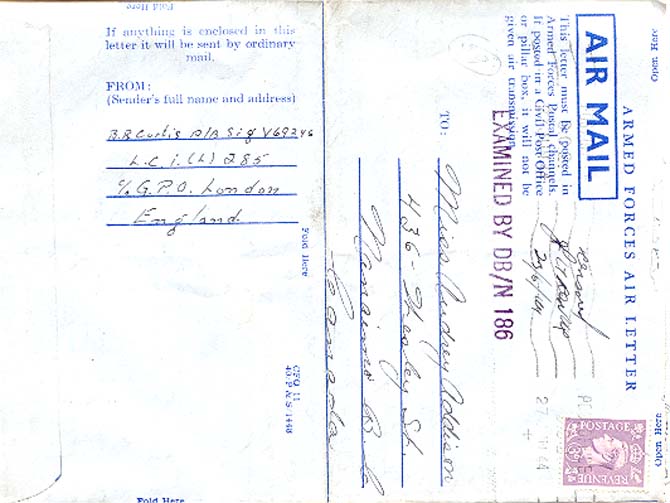 Fold Here
If anything is enclosed in this
letter it will be sent by ordinary
mail.
FROM:
(Sender's full name and address)
B.R Curtis A/A Sig V69246
L.C.I.(L) 285
c/o G.P.O. London
England
Fold Here
CFO 11
40 P&S 1448
Fold Here
ARMED FORCES AIR LETTER
AIR MAIL
This letter must be posted in
Armed Forces Postal channels.
If posted in a Civil Post Office
or pillar box, it will not be
given air transmission.
EXAMINED BY DB/N 186
censor
TO:
Miss Audrey Addison
436 - Wesley St.
Nanaimo B.C.
Canada
Open Here
Open Here
POSTAGE
REVENUE